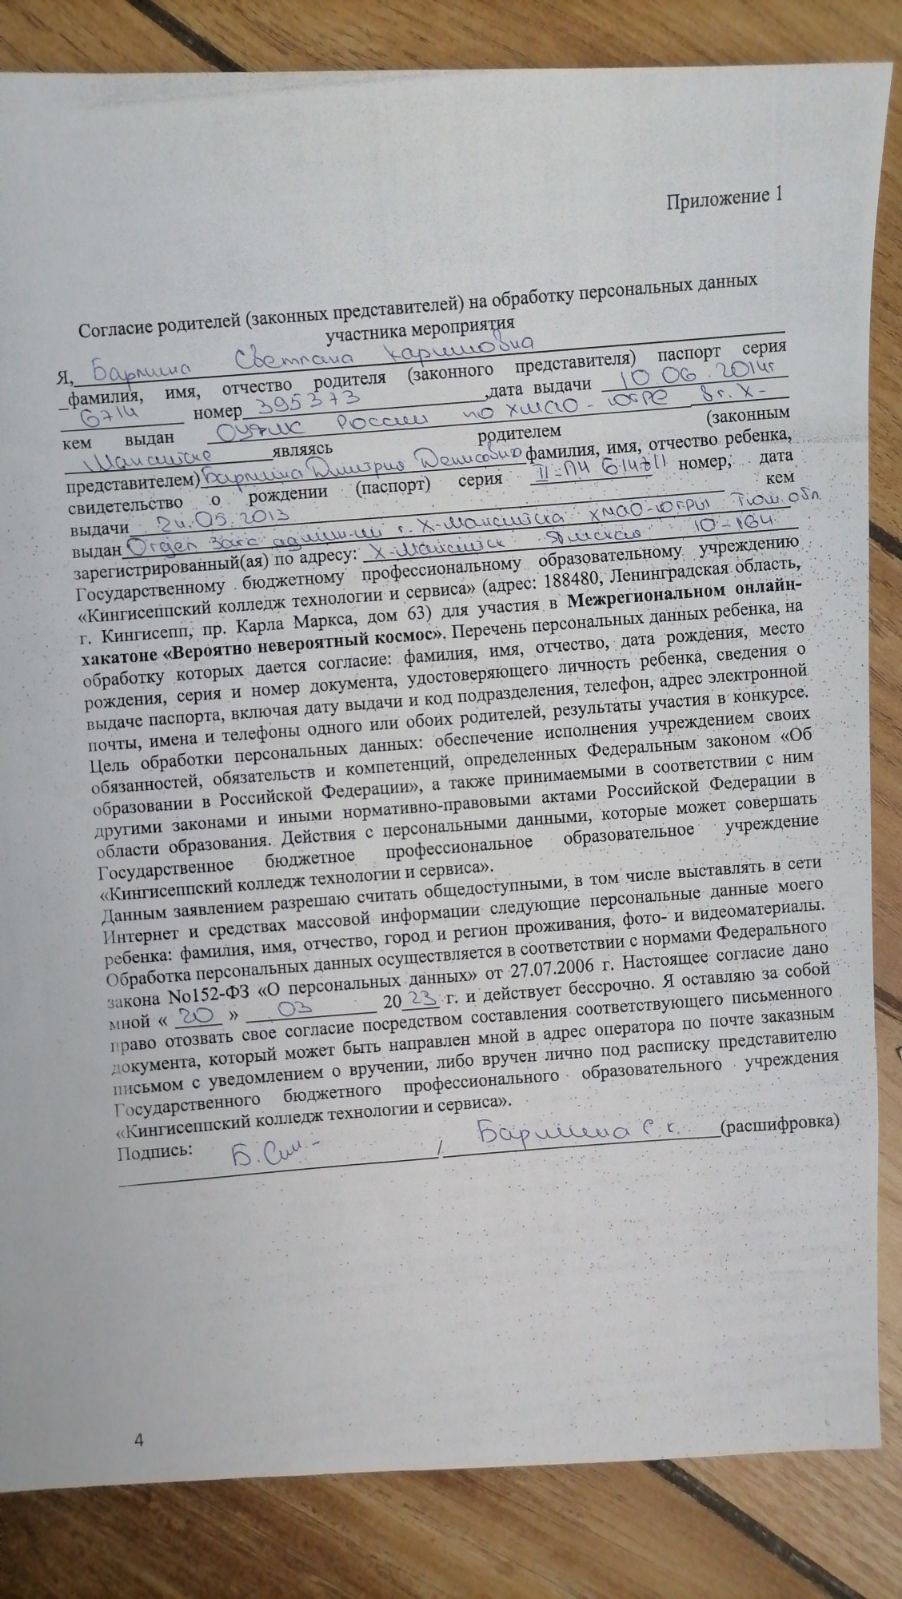 Приложение 1
Согласие родителей (законных представителей) на обработку персональных данных
участника мероприятия
Я, Светлана Каримовна
фамилия, имя, отчество родителя (законного представителя) паспорт серия
6714 номер 395373 ,дата выдачи 10.06.2014г
кем выдан России по ХМАО-Югре в г. Х-
Мансийске являясь родителем (законным
представителем) Дмитрия Денисовича фамилия, имя, отчество ребенка,
свидетельство о рождении (паспорт) серия II-ПН номер, дата
выдачи 24.05.2013 кем
выдан Отдел Загс админ-ии г. Х-Мансийска ХМАО-Югры Тюм. обл.
зарегистрированный(ая) по адресу: Х-Мансийск 10-164
Государственному бюджетному профессиональному образовательному учреждению
«Кингисеппский колледж технологии и сервиса» (адрес: 188480, Ленинградская область,
г. Кингисепп, пр. Карла Маркса, дом 63) для участия в Межрегиональном онлайн-
хакатоне «Вероятно невероятный космос». Перечень персональных данных ребенка, на
обработку которых дается согласие: фамилия, имя, отчество, дата рождения, место
рождения, серия и номер документа, удостоверяющего личность ребенка, сведения о
выдаче паспорта, включая дату выдачи и код подразделения, телефон, адрес электронной
почты, имена и телефоны одного или обоих родителей, результаты участия в конкурсе.
Цель обработки персональных данных: обеспечение исполнения учреждением своих
обязанностей, обязательств и компетенций, определенных Федеральным законом «Об
образовании в Российской Федерации», а также принимаемыми в соответствии с ним
другими законами и иными нормативно-правовыми актами Российской Федерации в
области образования. Действия с персональными данными, которые может совершать
Государственное бюджетное профессиональное образовательное учреждение
«Кингисеппский колледж технологии и сервиса».
Данным заявлением разрешаю считать общедоступными, в том числе выставлять в сети
Интернет и средствах массовой информации следующие персональные данные моего
ребенка: фамилия, имя, отчество, город и регион проживания, фото- и видеоматериалы.
Обработка персональных данных осуществляется в соответствии с нормами Федерального
закона No152-ФЗ «О персональных данных» от 27.07.2006 г. Настоящее согласие дано
мной « 20 » 03 2023 г. и действует бессрочно. Я оставляю за собой
право отозвать свое согласие посредством составления соответствующего письменного
документа, который может быть направлен мной в адрес оператора по почте заказным
письмом с уведомлением о вручении, либо вручен лично под расписку представителю
Государственного бюджетного профессионального образовательного учреждения
«Кингисеппский колледж технологии и сервиса».
Подпись: / С.К. (расшифровка)
4